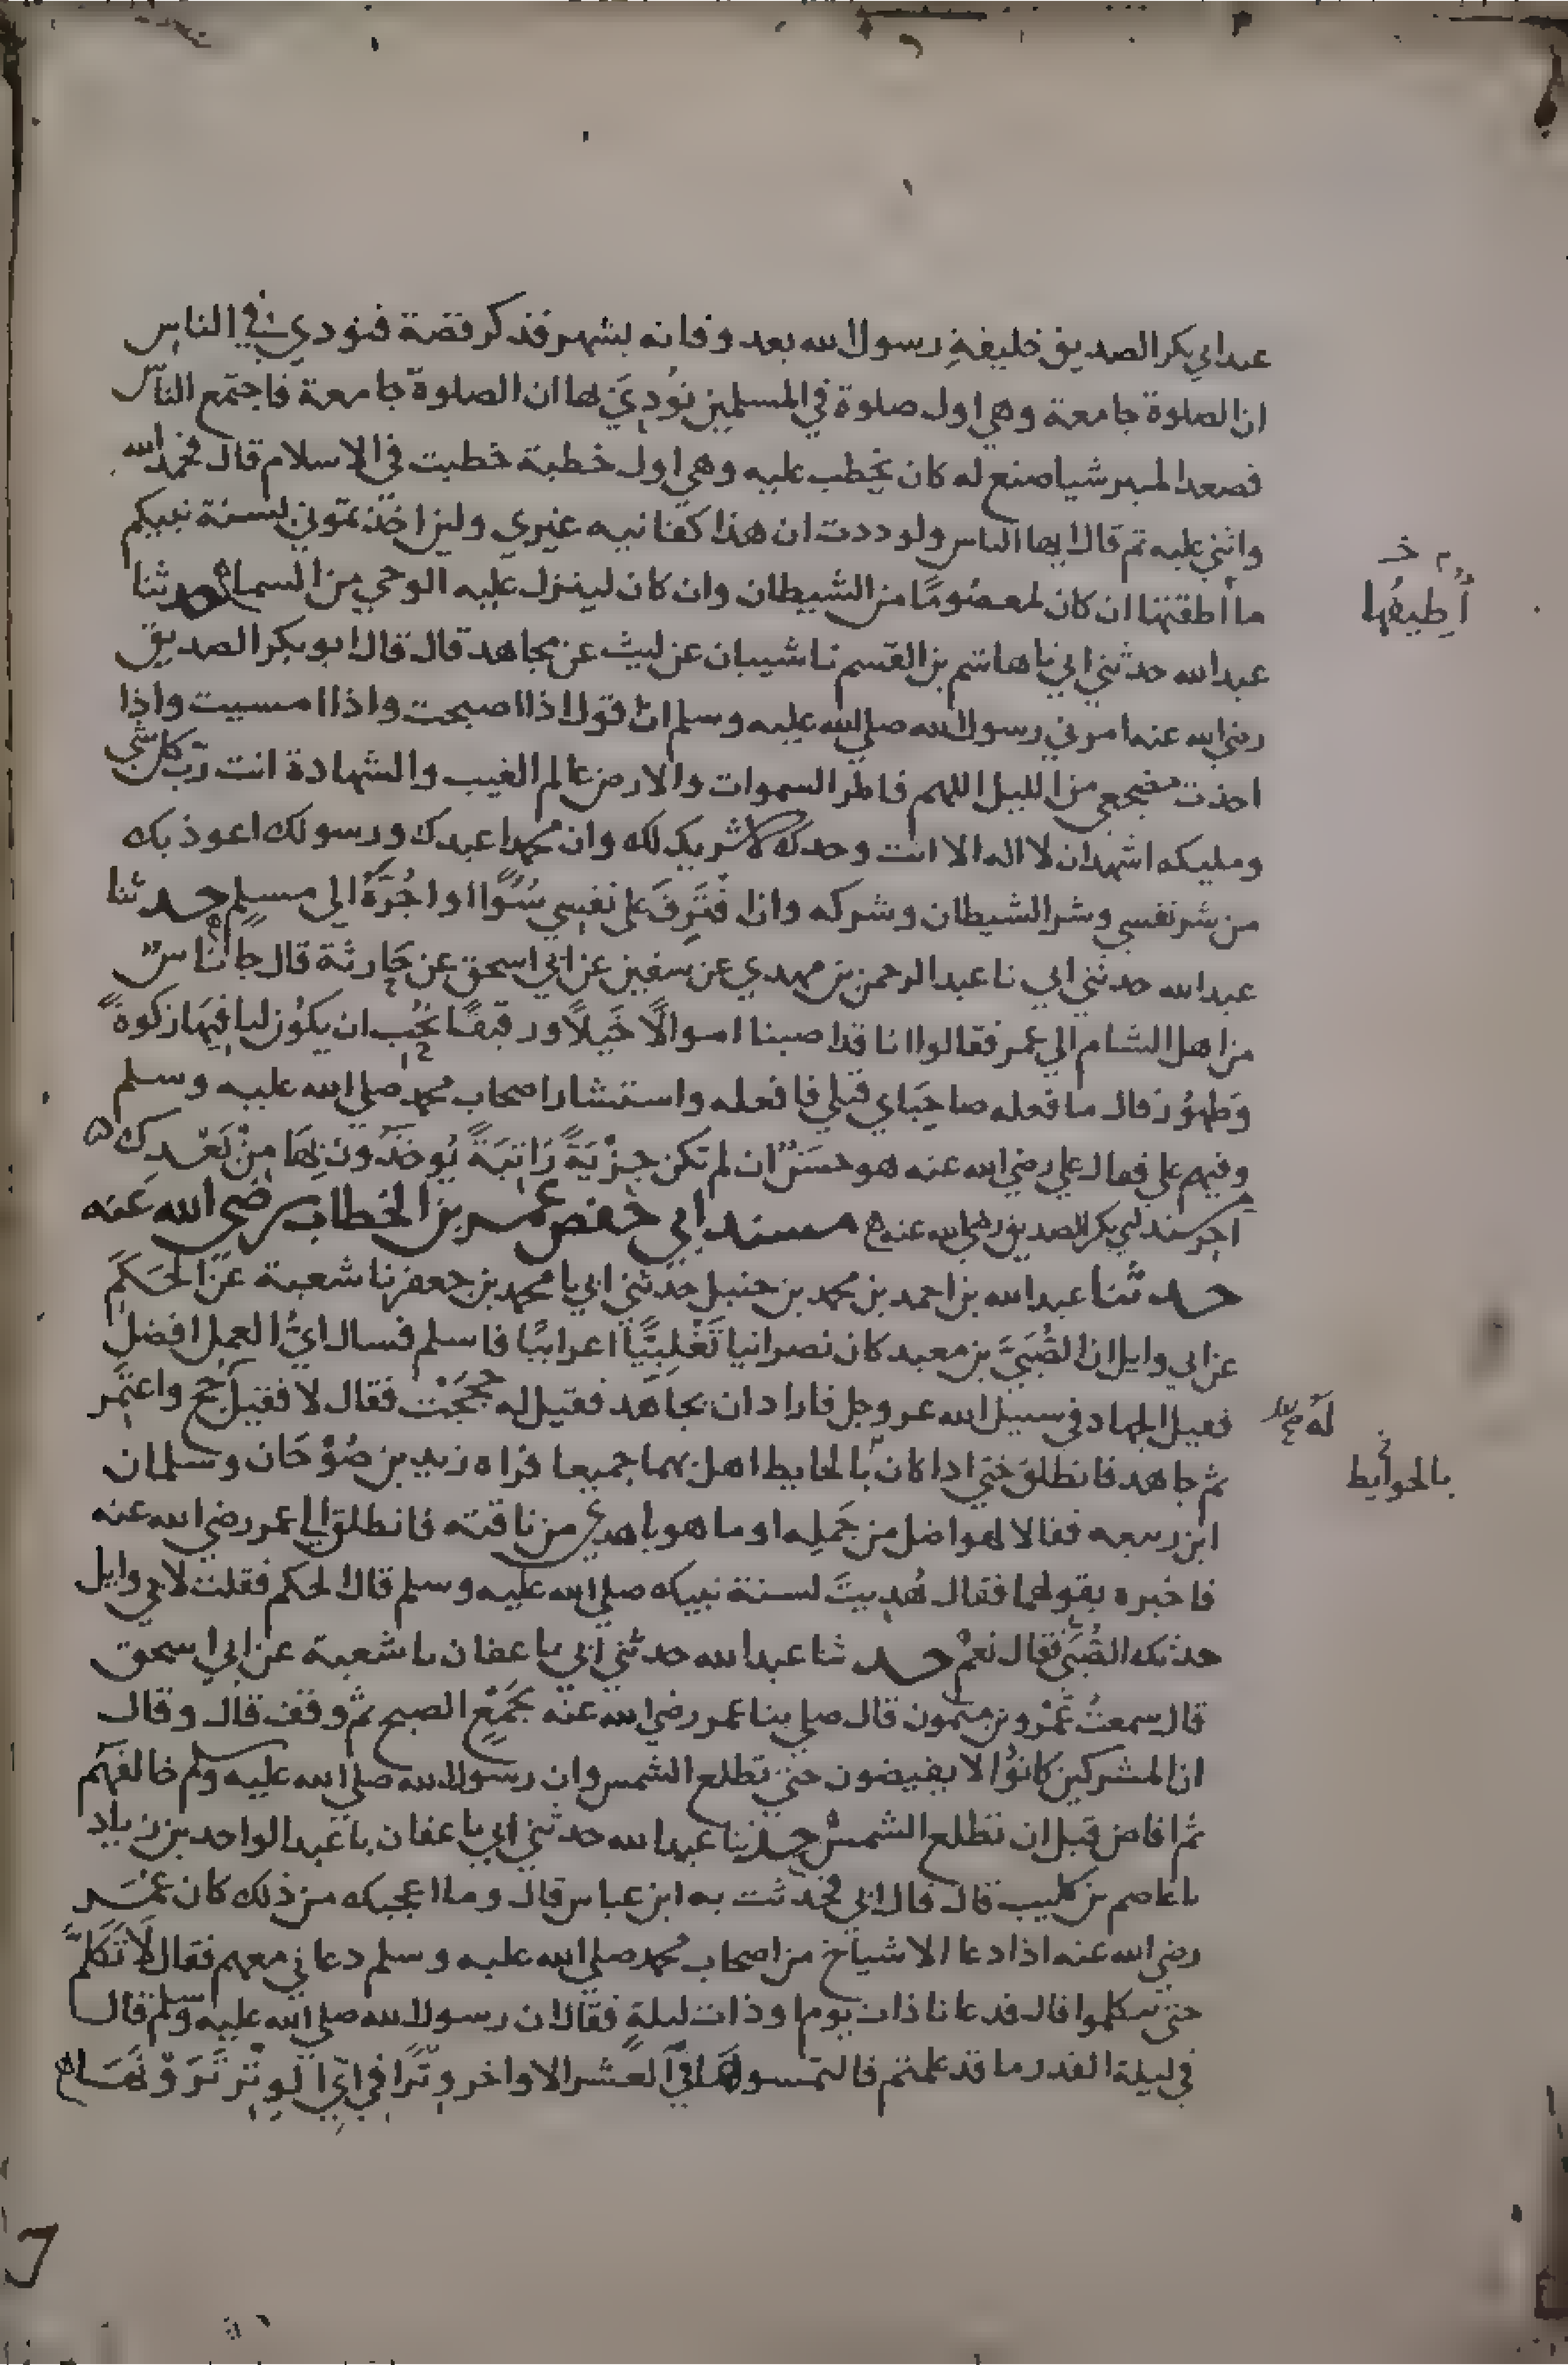 عند ابي بكر الصديق خليفة رسول الله بعد وفاته بشهر فذكر قصة فنودي في الناس
ان الصلوة جامعة وهي اول صلوة في المسلمين نودي لها ان الصلوة جامعة فاجتمع الناس
فصعد المنبر شيا صنع له كان يخطب عليه وهي اول خطبة خطبت في الاسلام قال فحمد الله
واثنى عليه ثم قال ايها الناس ولوددت ان هذا كفانيه غيري ولين اخذتموني لسنة نبيكم
ما اطقتها ان كان لمعصومًا من الشيطان وان كان لينزل عليه الوحي من السما حدثنا
أطيقُها
عبد الله حدثني ابي نا هاشم بن القسم نا شيبان عن ليث عن مجاهد قال قال ابو بكر الصديق
رضي الله عنه امرني رسول الله صلى الله عليه وسلم ان اقول اذا اصبحت واذا امسيت واذا
اخذت مضجعي من الليل اللهم فاطر السموات والارض عالم الغيب والشهادة انت رب كل شي
ومليكه اشهد ان لا اله الا انت وحدك لا شريك لك وان محمدا عبدك ورسولك اعوذ بك
من شر نفسي وشر الشيطان وشركه وان اقترف على نفسي سُوًا او اجُرَّهُ الى مسلم حدثنا
عبد الله حدثني ابي نا عبد الرحمن بن مهدي عن سفين عن ابي اسحق عن حارثة قال جا ناس
من اهل الشام الى عمر فقالوا انا قد اصبنا اموالًا خَيلًا ورقيقًا نُحِب ان يكون لنا فيها زكوةً
وطهور قال ما فعله صاحباي قبلي فافعله واستشار اصحاب محمد صلى الله عليه وسلم
وفيهم علي فقال علي رضي الله عنه هو حسنٌ ان لم تكن جزيَةً رَاتبَةً يُوخذون بِهَا مِنْ بَعْدِك
اخر مسند ابي بكر الصديق رضي الله عنه مسند ابي حفص عمر بن الخطاب رضي الله عنه
حدثنا عبد الله بن احمد بن محمد بن حنبل حدثني ابي نا محمد بن جعفر نا شعبة عن الحَكَمَ
عن ابي وايل ان الصُّبَيَّ بن معبد كان نصرانيا تَغْلِبِيًّا اعرابيًا فاسلم فسال ايُّ العمل افضل
فقيل الجهاد في سبيل الله عز وجل فاراد ان يجاهد فقيل له حججتَ فقال لا فقيل حُج واعتمر
لَهُ صح
ثم جاهد فانطلق حتى اذا كان بالحايط اهل بهما جميعا فراه زيد بن صُوْحَان وسلمان
بالحوايط
ابن ربيعه فقالا لهو اضل من جَمَلِه او ما هو باهدى من ناقته فانطلق الى عمر رضي الله عنه
فاخبره بقولهما فقال هُدِيتَ لسنة نبيك صلى الله عليه وسلم قال الحكم فقلت لابي وايل
حدثك الصُّبَيّ فقال نعم حدثنا عبد الله حدثني ابي نا عفان نا شعبة عن ابي اسحق
قال سمعتُ عَمْرو بن ميمون قال صلى بنا عمر رضي الله عنه بِجَمْعٍ الصبح ثم وقف قال وقال
ان المشركين كانوُا لا يفيضون حتى تطلع الشمس وان رسول الله صلى الله عليه وسلم خالفهم
ثم افاض قبل ان تطلع الشمس حدثنا عبد الله حدثني ابي نا عفان نا عبد الواحد بن زياد
نا عاصم بن كليب قال قال ابي فحدثت به ابن عباس قال وما اعجبك من ذلك كان عمر
رضي الله عنه اذا دعا الاشياخ من اصحاب محمد صلى الله عليه وسلم دعاني معهم فقال لَا تَكَلَّم
حتى يتكلموا قال فدعانا ذات يوم او ذات ليلةٍ فقال ان رسول الله صلى الله عليه وسلم قال
في ليلة القدر ما قد علمتم فالتمسوها في العشر الاواخر وِتْرًا فِي ايِّ الوِتْرِ تَرَوْنَهَا